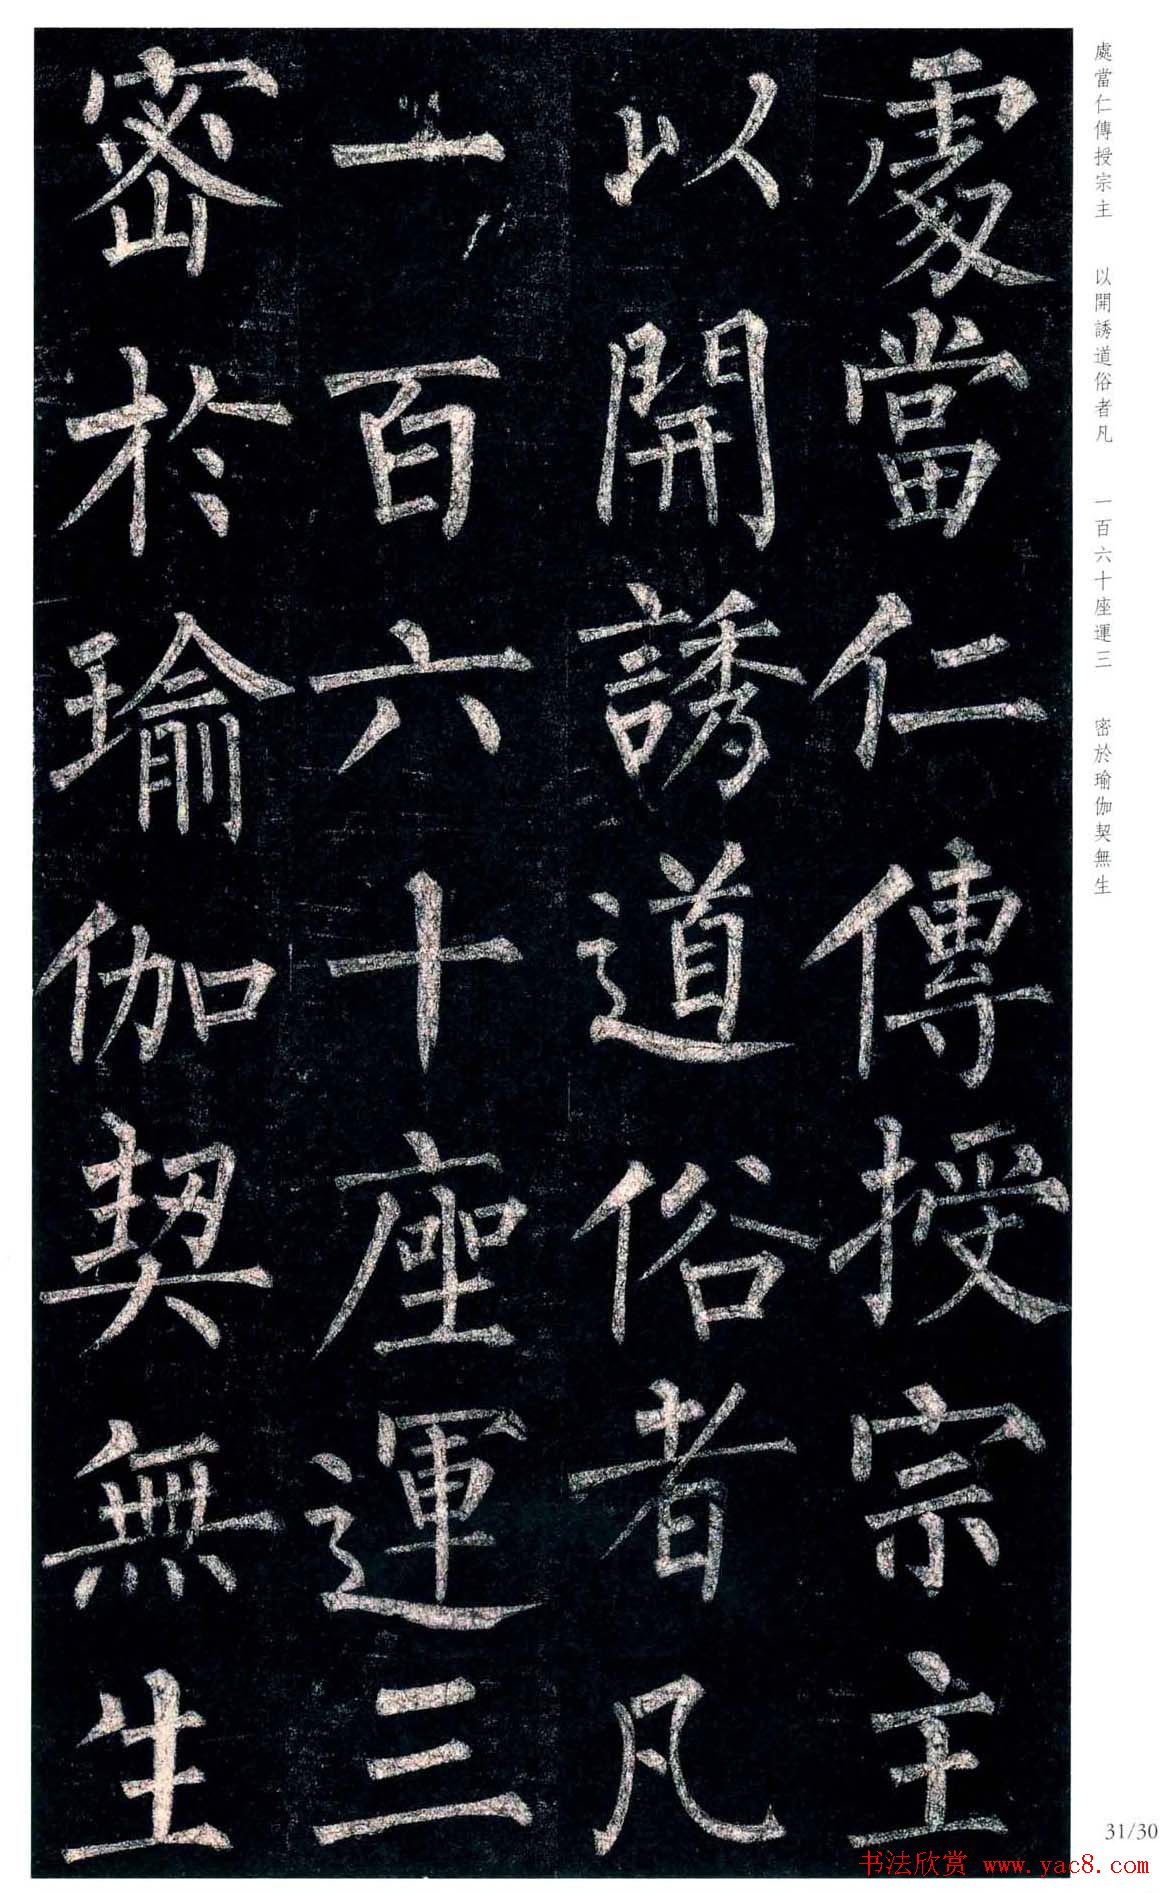 處當仁傳授宗主
以開誘道俗者凡
一百六十座運三
密於瑜伽契無生
處當仁傳授宗主 以開誘道俗者凡 一百六十座運三 密於瑜伽契無生
31/30
书法欣赏 www.yac8.com